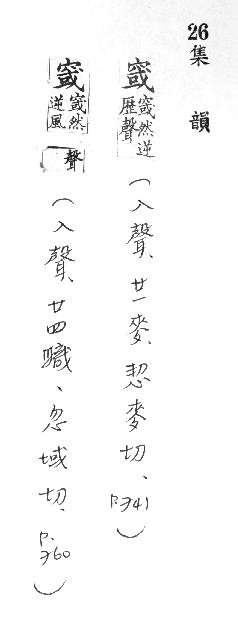 26集韻
窢窢然逆歷聲(入聲、廿一麥、恝麥切、P.741)
窢窢然逆風聲(入聲、廿四職、忽域切、P.760)